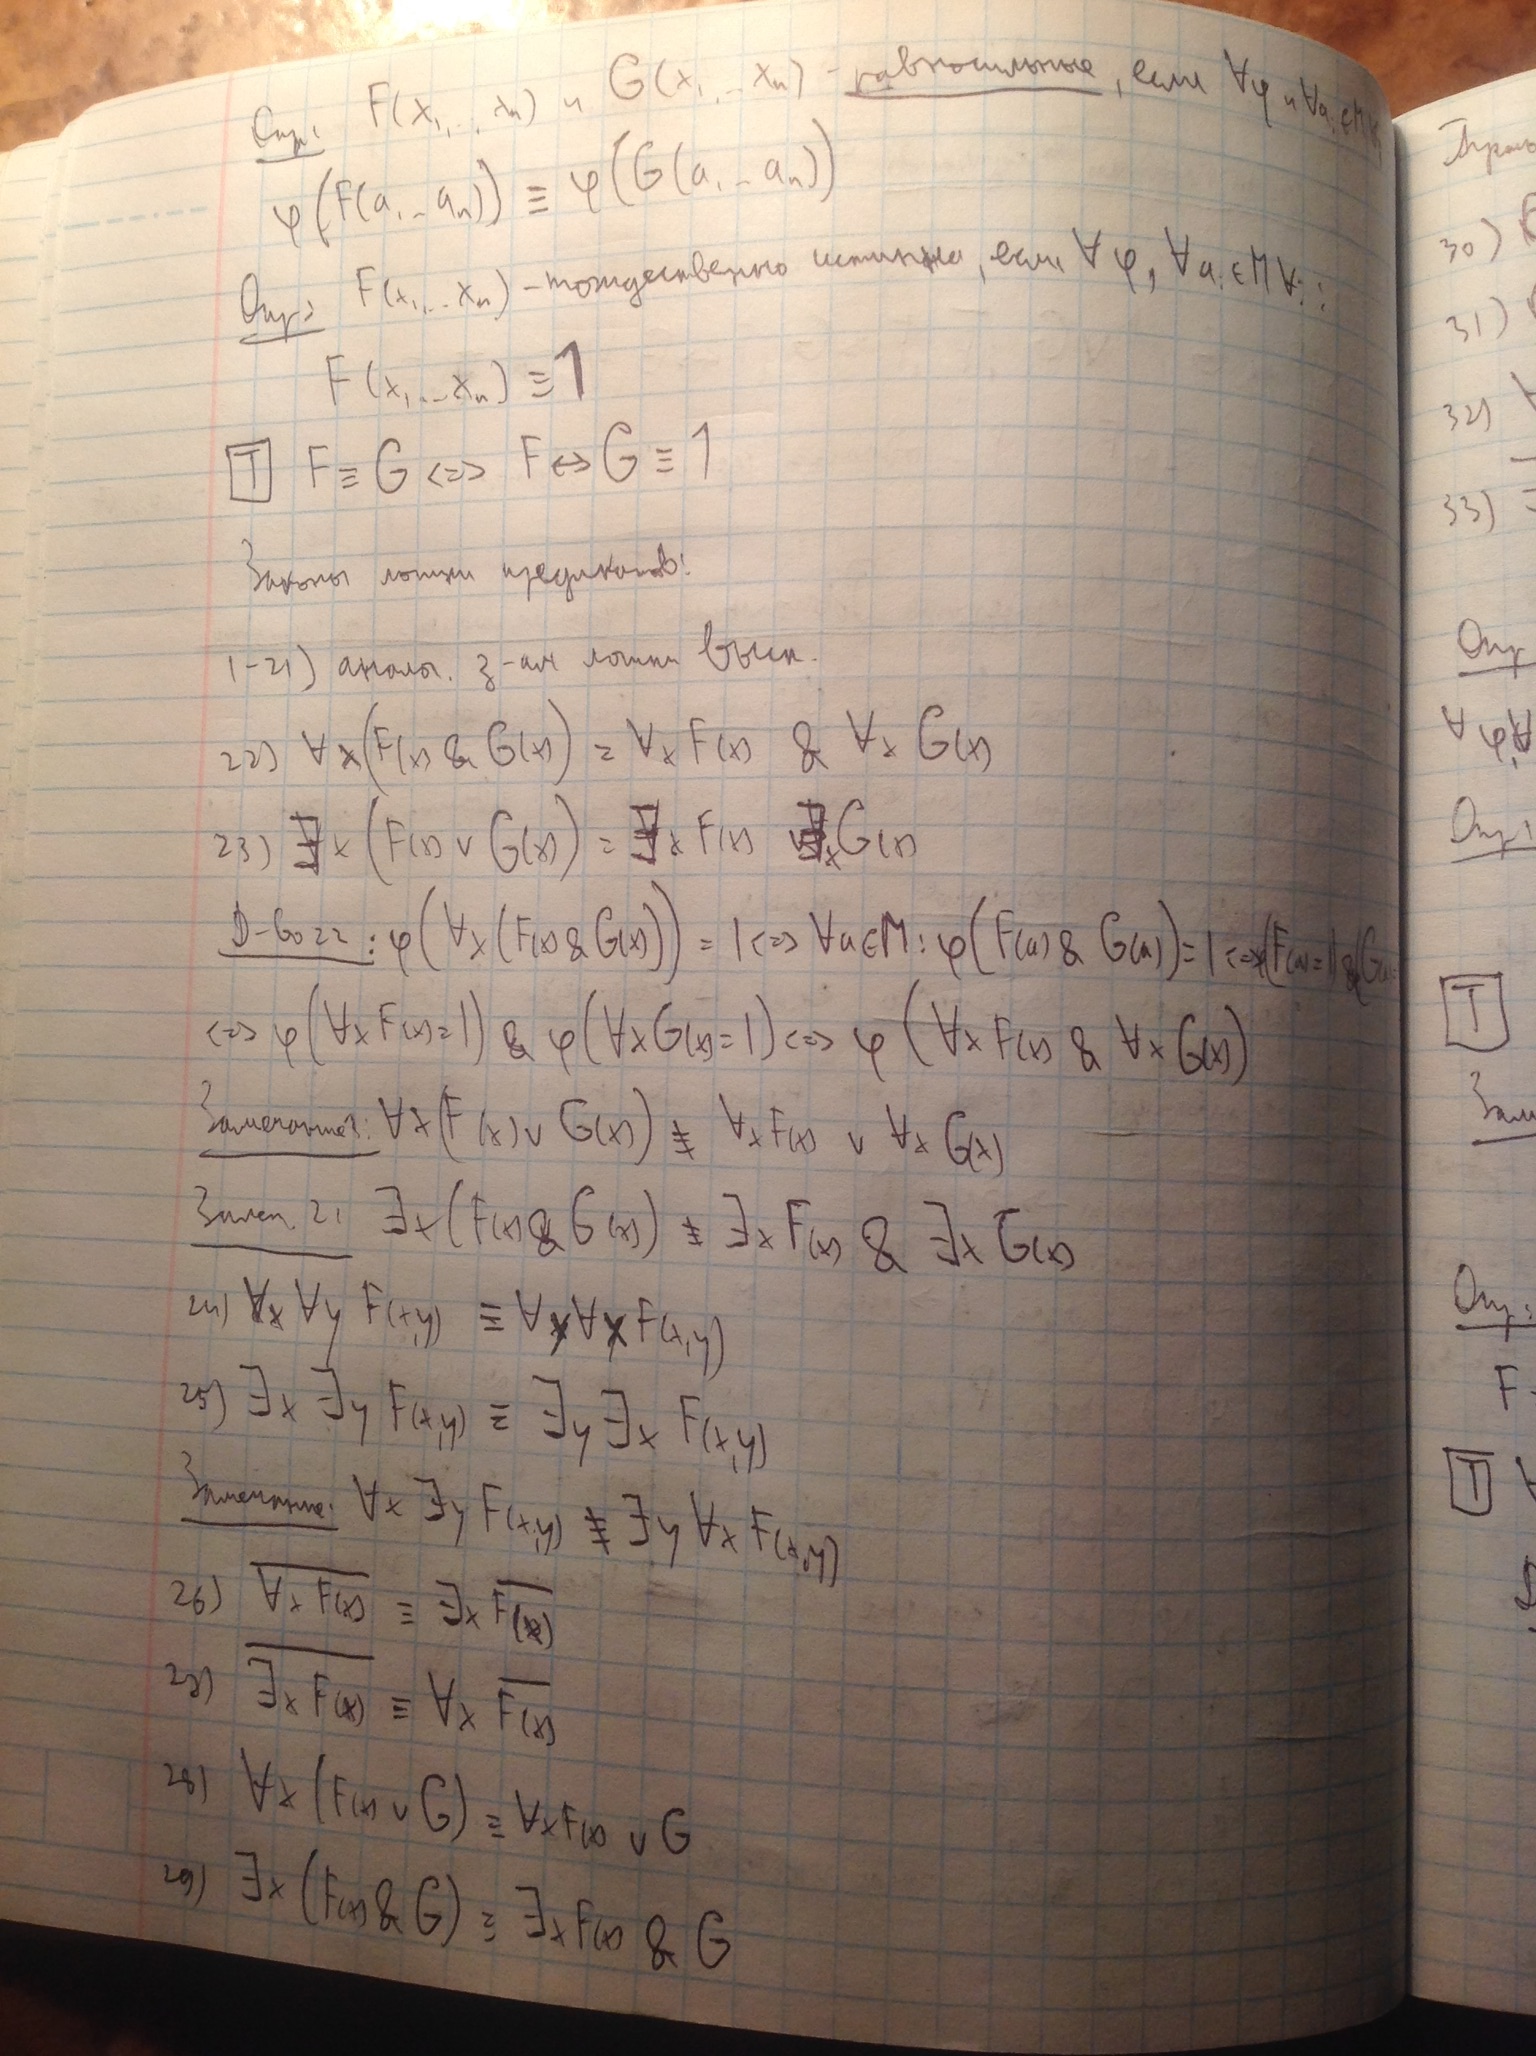 Опр: F(x₁,...xₙ) и G(x₁,...xₙ) - равносильные, если ∀φ и ∀aᵢ∈M ∀i
φ(F(a₁...aₙ)) ≡ φ(G(a₁...aₙ))
Опр: F(x₁,...xₙ) - тождественно истинна, если ∀φ, ∀aᵢ∈M ∀i:
F(x₁,...xₙ) ≡ 1
T F ≡ G <=> F ↔ G ≡ 1
Законы логики предикатов:
1-21) аналог. з-ам логики выск.
22) ∀x(F(x) & G(x)) = ∀x F(x) & ∀x G(x)
23) ∃x(F(x) ∨ G(x)) = ∃x F(x) ∨ ∃x G(x)
Д-во 22: φ(∀x(F(x) & G(x))) = 1 <=> ∀a∈M: φ(F(a) & G(a)) = 1 <=> φ(F(a)=1) & φ(G(a)=
<=> φ(∀x F(x)=1) & φ(∀x G(x)=1) <=> φ(∀x F(x) & ∀x G(x))
Замечание1: ∀x(F(x) ∨ G(x)) ≢ ∀x F(x) ∨ ∀x G(x)
Замеч. 2: ∃x(F(x) & G(x)) ≢ ∃x F(x) & ∃x G(x)
24) ∀x ∀y F(x,y) ≡ ∀y ∀x F(x,y)
25) ∃x ∃y F(x,y) ≡ ∃y ∃x F(x,y)
Замечание: ∀x ∃y F(x,y) ≢ ∃y ∀x F(x,y)
26) \overline{∀x F(x)} ≡ ∃x \overline{F(x)}
27) \overline{∃x F(x)} ≡ ∀x \overline{F(x)}
28) ∀x (F(x) ∨ G) ≡ ∀x F(x) ∨ G
29) ∃x (F(x) & G) ≡ ∃x F(x) & G
30)
31)
32)
33)
Опр
∀φ, ∀
Опр
T
Зам
Опр:
F
T ∀